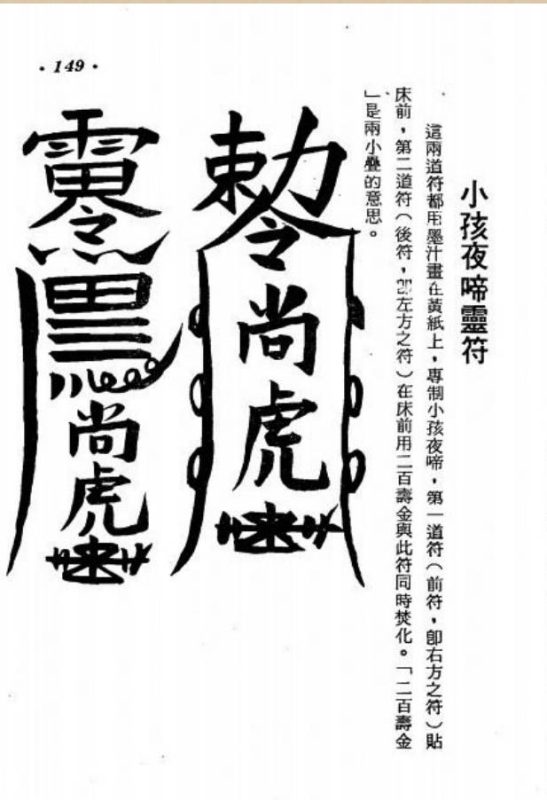 • 149 •
小孩夜啼靈符
這兩道符都用墨汁畫在黃紙上，專制小孩夜啼，第一道符（前符，卽右方之符）貼
床前，第二道符（後符，卽左方之符）在床前用二百壽金與此符同時焚化。「二百壽金
」是兩小疊的意思。
勅令
尚虎
尚虎